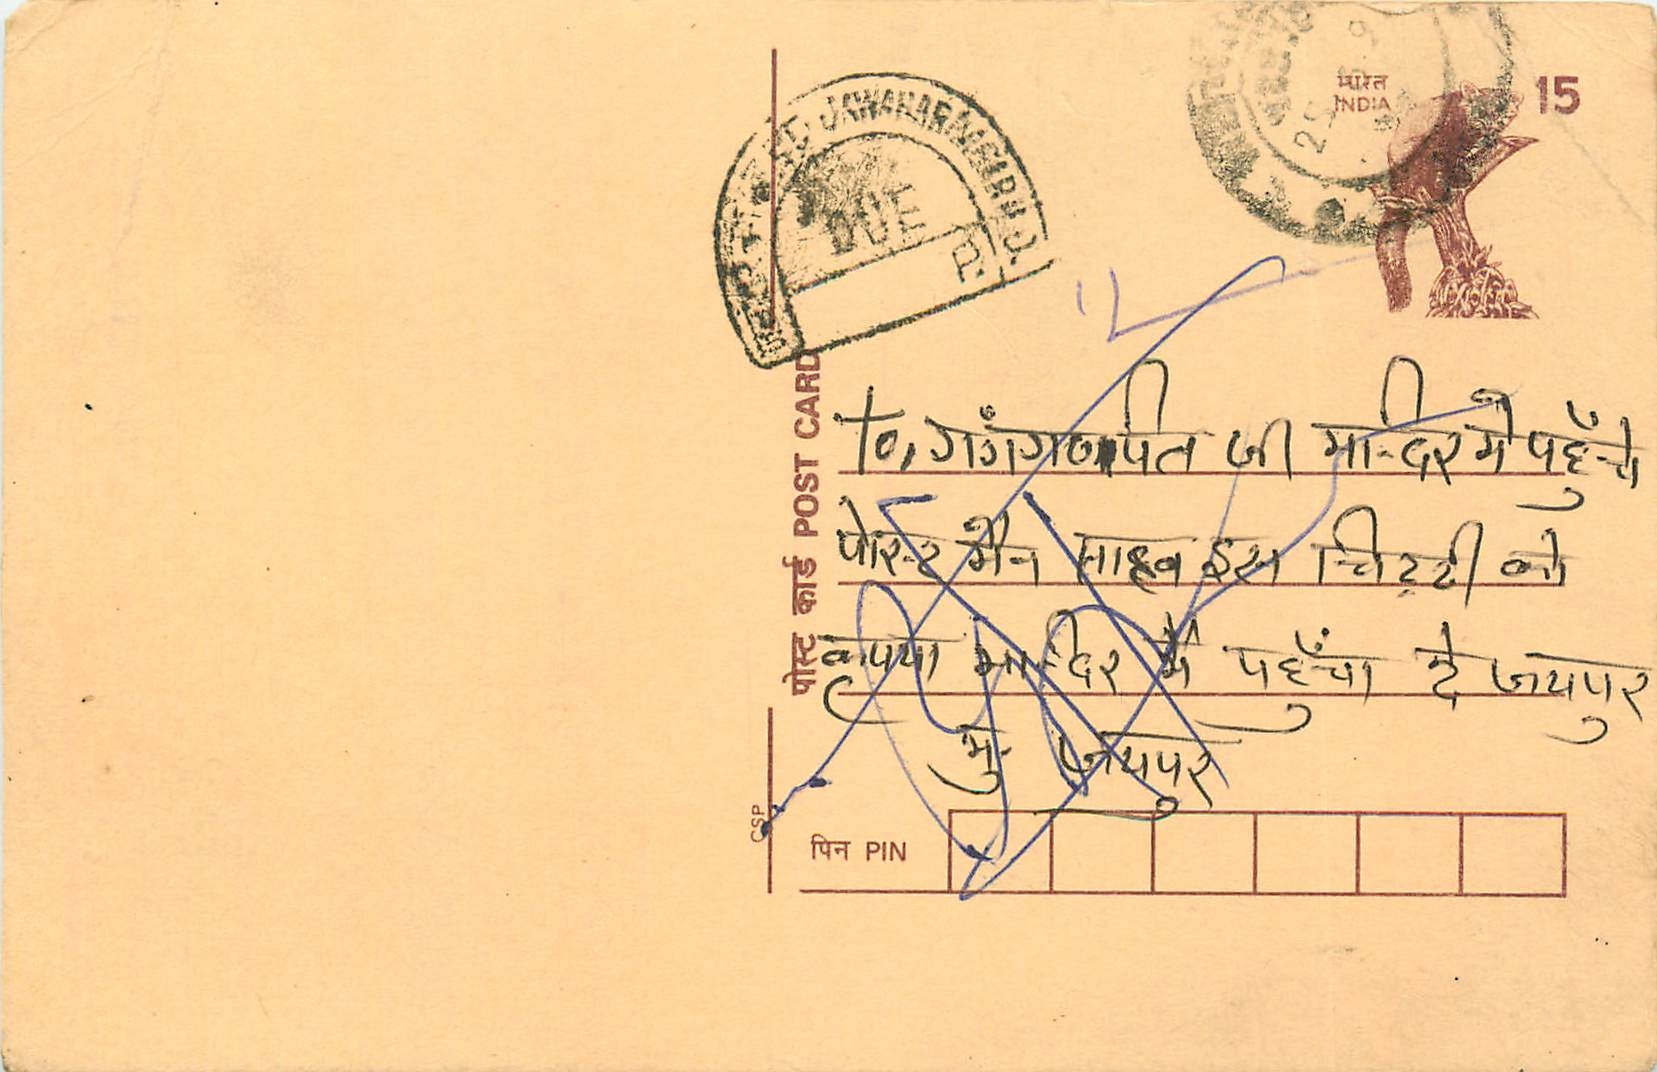 भारत
INDIA
15
JAWAHAR NAGAR P.O.
DUE
P.
पोस्ट कार्ड POST CARD
To, गंगंगणपति जी मन्दिर मे पहुँचे
पोस्ट मैन साहब इस चिट्टी को
कृपया मन्दिर में पहुँचा दे जयपुर
मु. जयपुर
CSP
पिन PIN